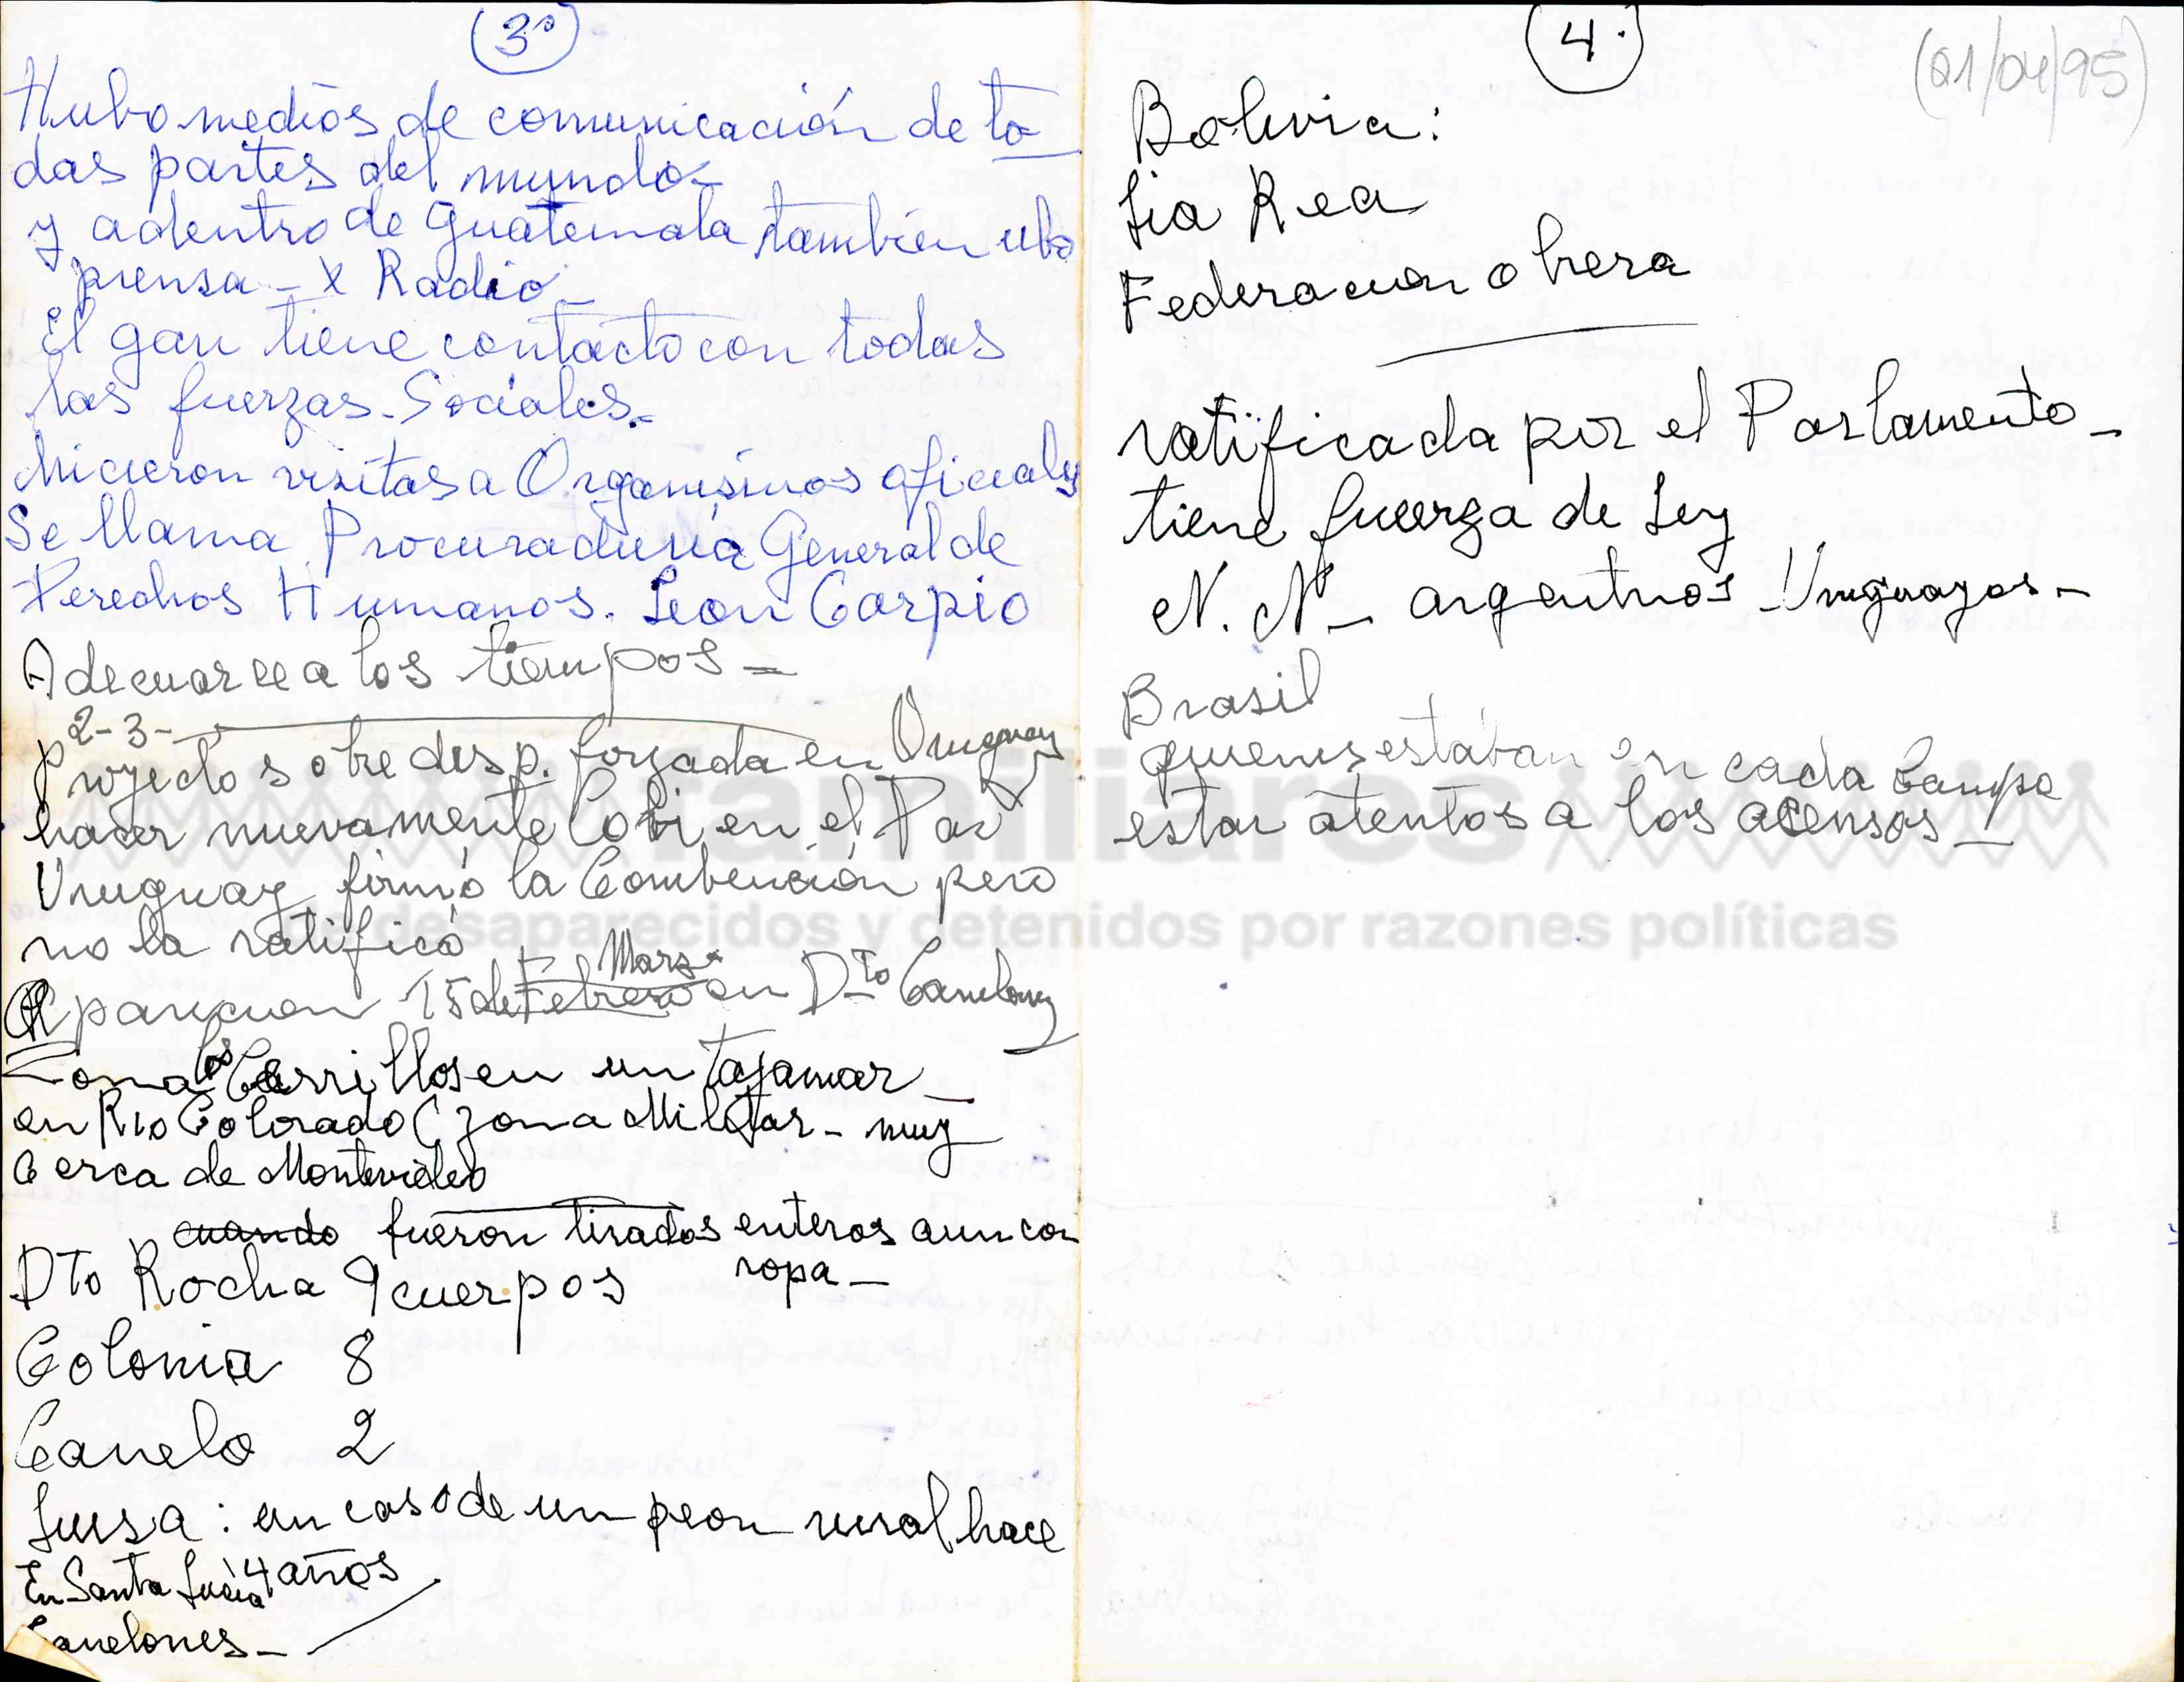 3º
Hubo medios de comunicación de to
das partes del mundo-
y adentro de Guatemala también ubo
prensa - x Radio -
El gan tiene contacto con todas
las fuerzas Sociales.-
hicieron visitas a Organismos oficiales
Se llama Procuraduría General de
Derechos Humanos. Leon Carpio
Adecuarse a los tiempos -
2-3-
Proyecto sobre desp. forzada en Uruguay
hacer nuevamente Cobi en el Par
Uruguay firmó la Combención pero
no la ratificó
Marzo
Aparicion 15 de Febrero en Dto Canelones
Zona los Cerrillos en un tajamar -
en Rio Colorado (zona Militar - muy
Cerca de Montevideo
cuando fueron tirados enteros aun con
ropa -
Dto Rocha 9 cuerpos
Colonia 8
Canelo 2
Luisa : un caso de un peon rural hace
4 años
En Santa Lucia
Canelones -
4.
(01/04/95)
Bolivia:
Lia Rea
Federacion obrera
ratificada por el Parlamento -
tiene fuerza de Ley
N. N - argentinos - Uruguayos -
Brasil
quienes estaban en cada Campo
estar atentos a los acensos -
familiares
desaparecidos y detenidos por razones políticas